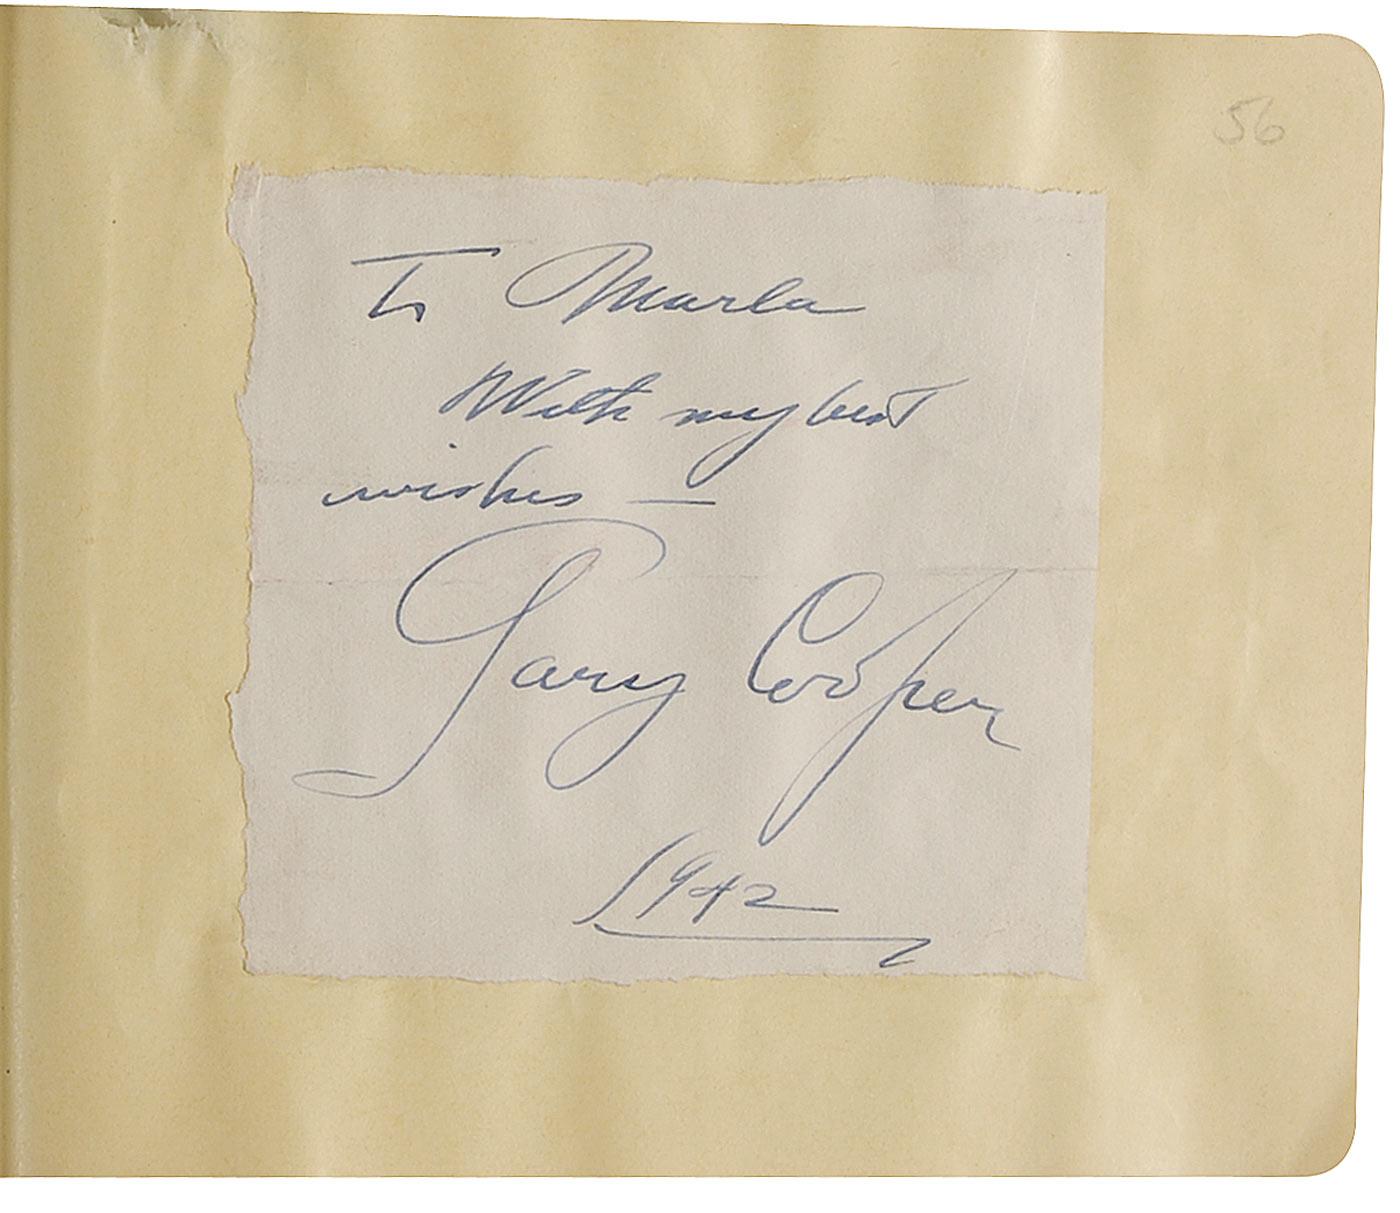 56
To Marla
With my best
wishes —
Gary Cooper
1942